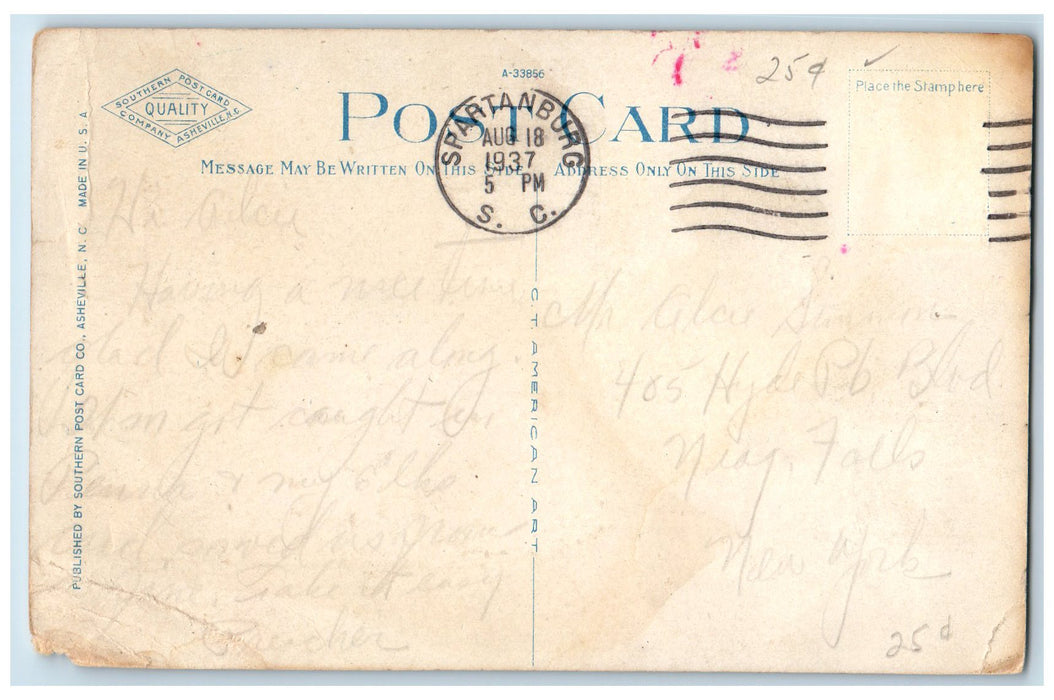 A-33856
SOUTHERN POST CARD
QUALITY
COMPANY ASHEVILLE, N.C.
POST CARD
MESSAGE MAY BE WRITTEN ON THIS SIDE
ADDRESS ONLY ON THIS SIDE
SPARTANBURG
AUG 18
1937
5 PM
S. C.
25¢
Place the Stamp here
PUBLISHED BY SOUTHERN POST CARD CO., ASHEVILLE, N. C. MADE IN U. S. A.
C.T. AMERICAN ART
Hi
Having a nice time
glad I came along.
got caught in
Penna & my Elks
card saved us from
take it easy
Mr.
405 Hyde Pk. Blvd.
Niag. Falls
New York
25¢